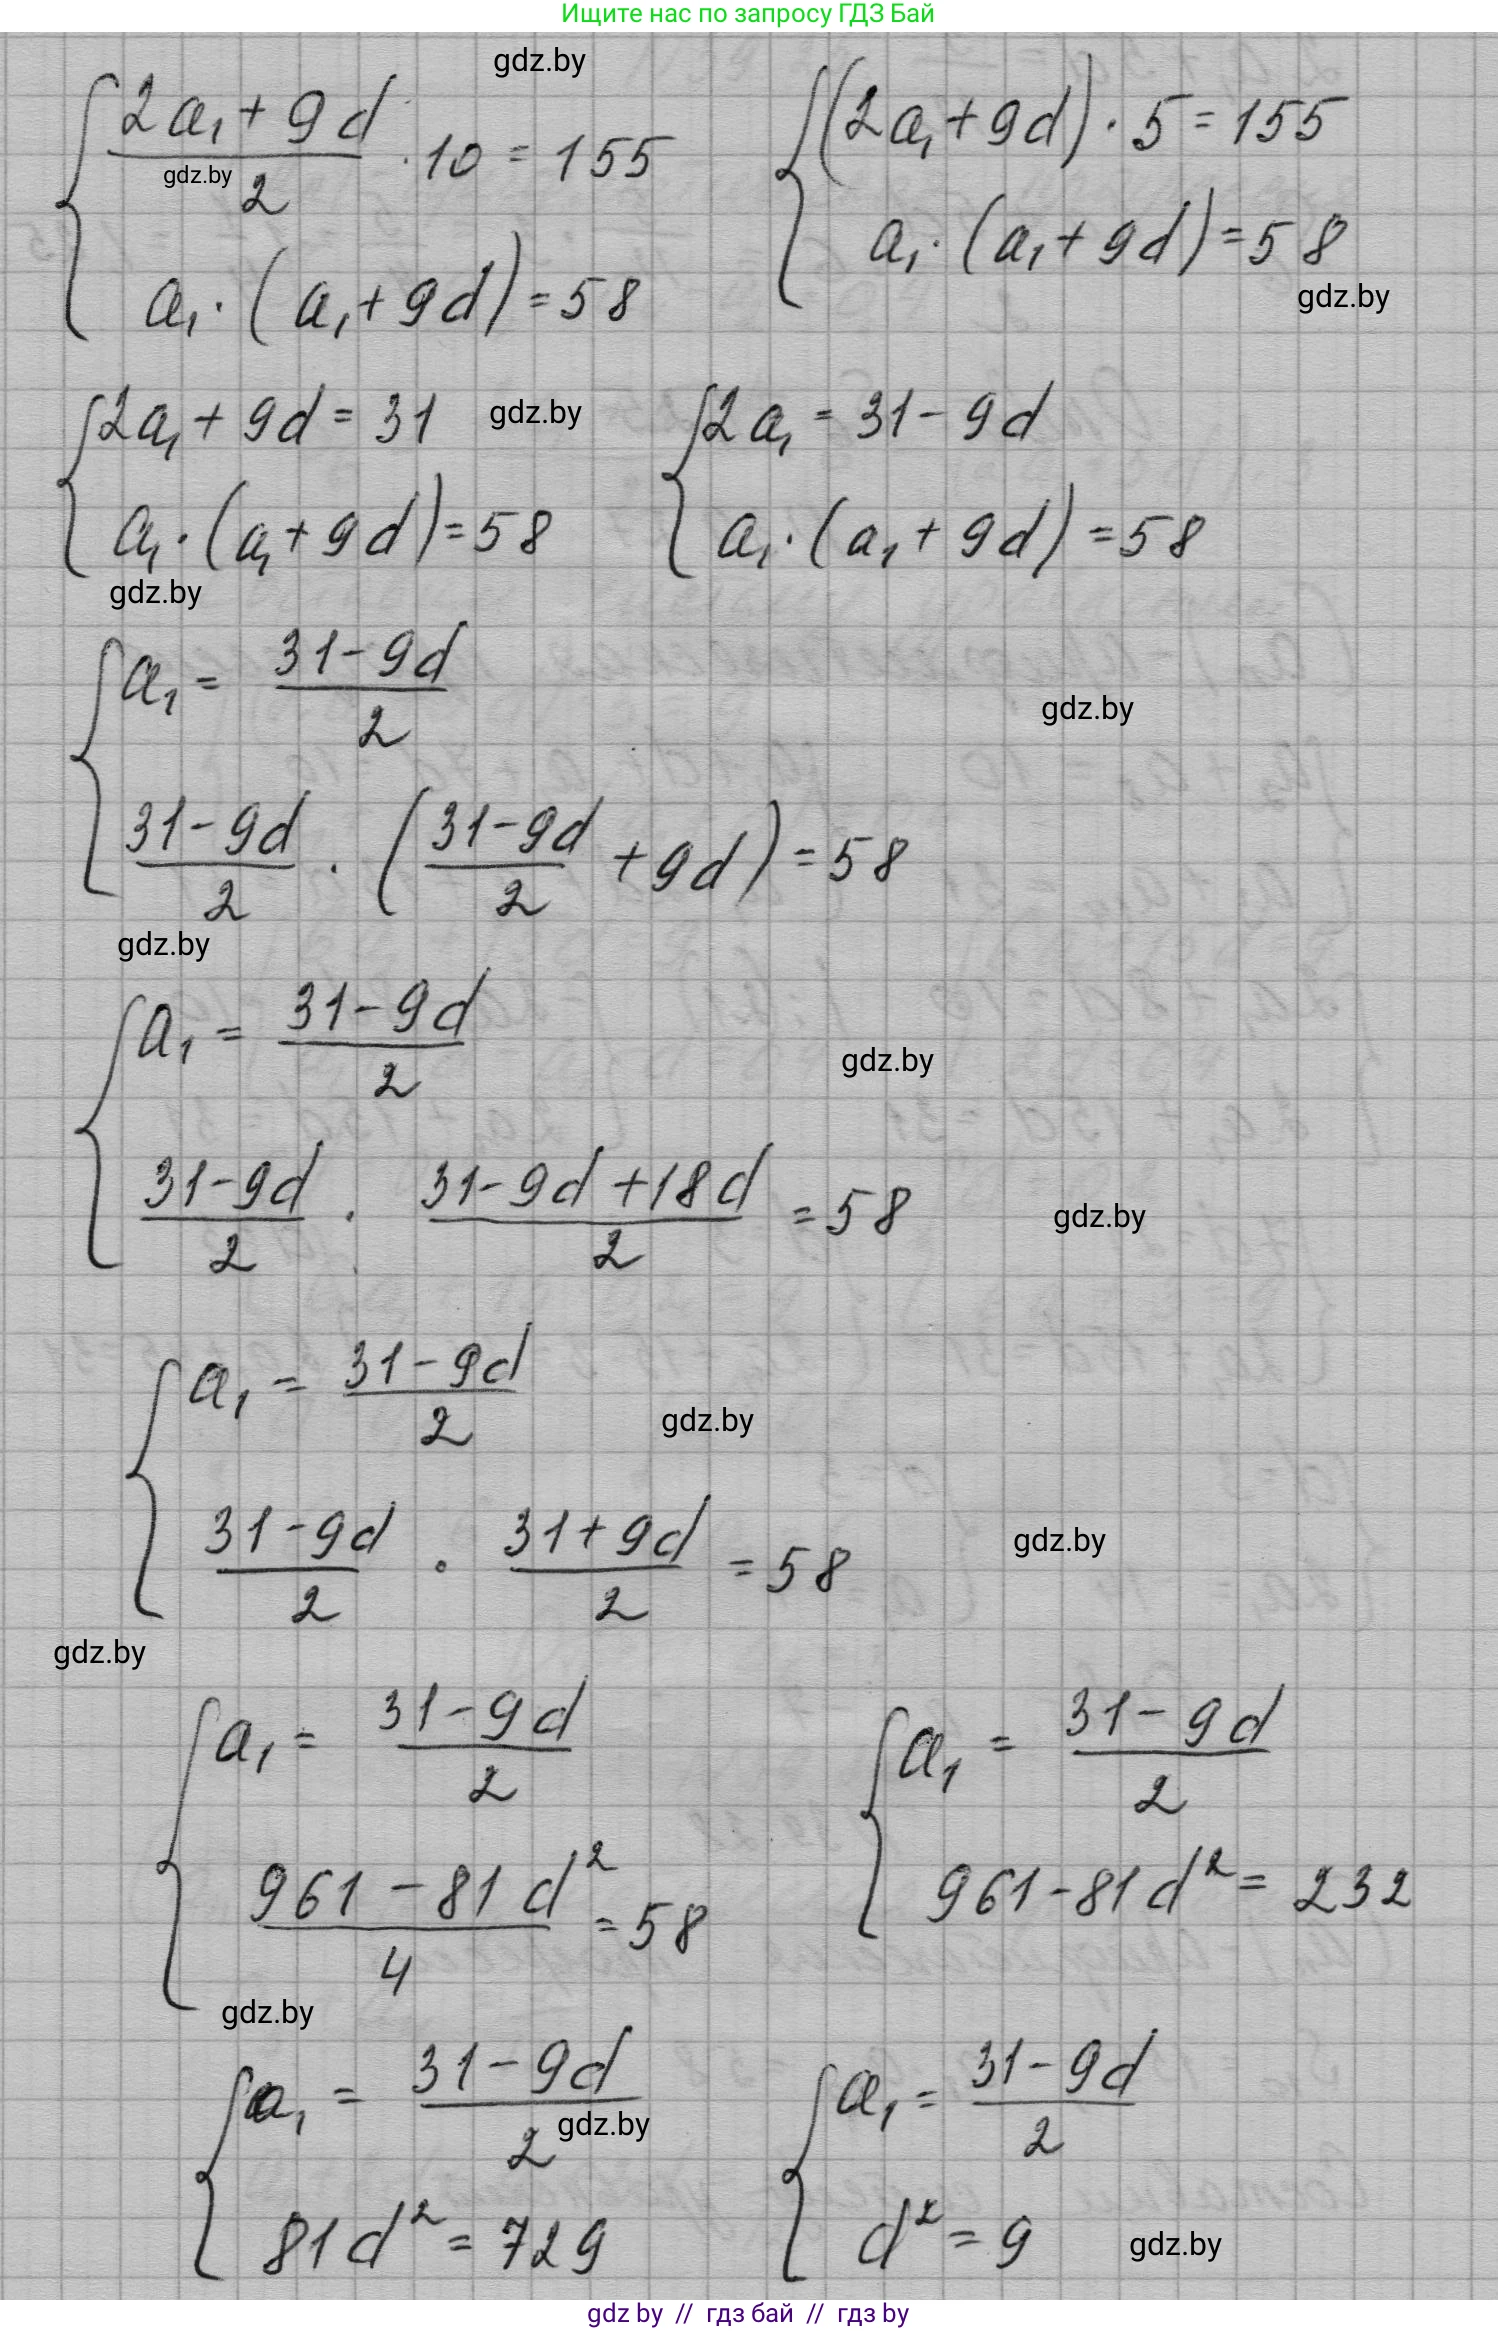 Ищите нас по запросу ГДЗ Бай
gdz.by
{ (2a₁ + 9d)/2 · 10 = 155
gdz.by
a₁ · (a₁ + 9d) = 58
{ (2a₁ + 9d) · 5 = 155
a₁ · (a₁ + 9d) = 58
gdz.by
{ 2a₁ + 9d = 31
a₁ · (a₁ + 9d) = 58
gdz.by
{ 2a₁ = 31 - 9d
a₁ · (a₁ + 9d) = 58
gdz.by
{ a₁ = (31 - 9d)/2
gdz.by
(31 - 9d)/2 · ((31 - 9d)/2 + 9d) = 58
gdz.by
{ a₁ = (31 - 9d)/2
gdz.by
(31 - 9d)/2 · (31 - 9d + 18d)/2 = 58
gdz.by
{ a₁ = (31 - 9d)/2
gdz.by
(31 - 9d)/2 · (31 + 9d)/2 = 58
gdz.by
gdz.by
{ a₁ = (31 - 9d)/2
(961 - 81d²)/4 = 58
{ a₁ = (31 - 9d)/2
961 - 81d² = 232
gdz.by
{ a₁ = (31 - 9d)/2
gdz.by
81d² = 729
{ a₁ = (31 - 9d)/2
d² = 9
gdz.by
gdz by // гдз бай // гдз by